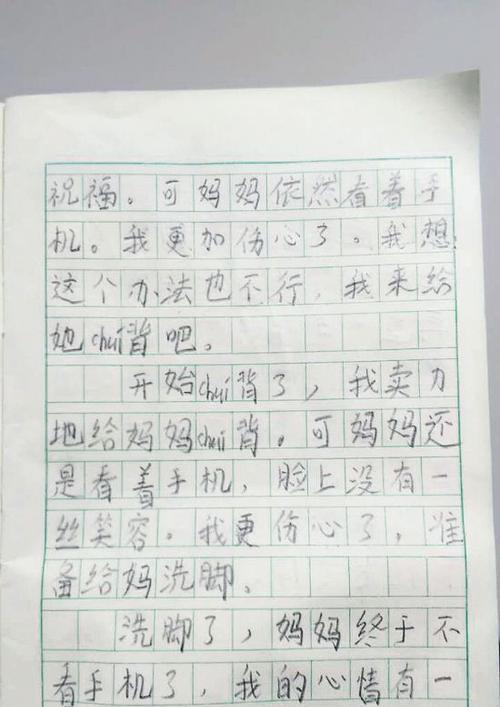 祝福。可妈妈依然看着手
机。我更加伤心了。我想
这个办法也不行，我来给
她chui背吧。
开始chui背了，我卖力
地给妈妈chui背。可妈妈还
是看着手机，脸上没有一
丝笑容。我更伤心了，准
备给妈洗脚。
洗脚了，妈妈终于不
看手机了，我的心情有一